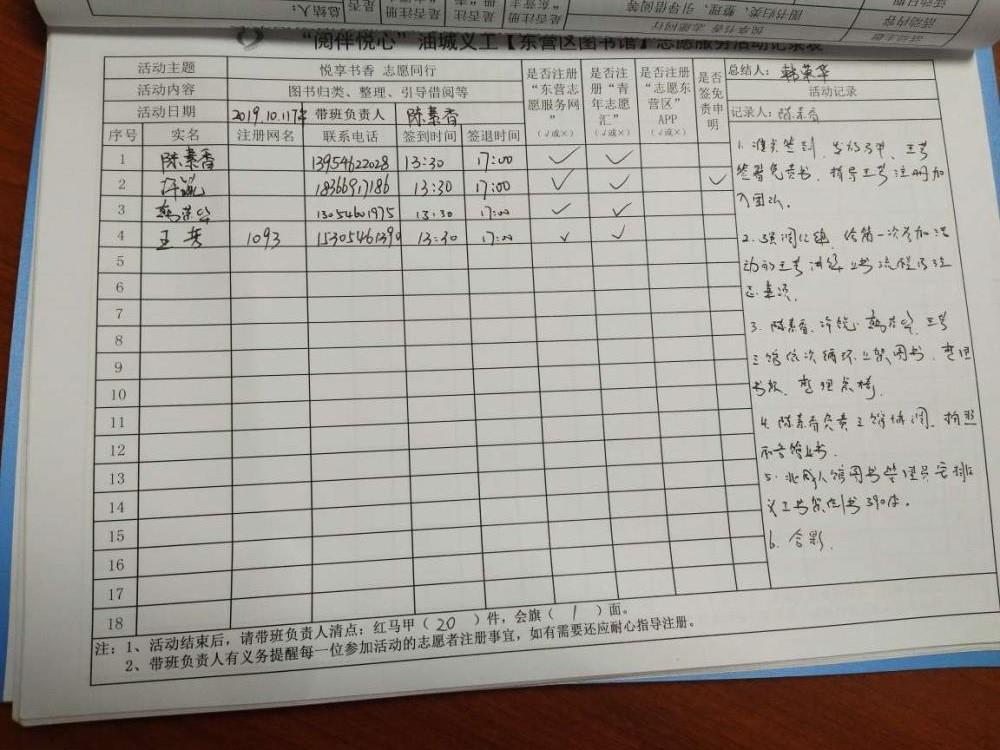 "阅伴悦心"油城义工【东营区图书馆】志愿服务活动记录表
活动主题 悦享书香 志愿同行
活动内容 图书归类、整理、引导借阅等
活动日期 2019.10.11下午 带班负责人 陈素香
是否注册"东营志愿服务网"(√或×) 是否注册"青年志愿汇"(√或×) 是否注册"志愿东营区"APP(√或×) 是否签免责申明
总结人：韩荣华
活动记录
记录人：陈素香
序号 实名 注册网名 联系电话 签到时间 签退时间
1 陈素香 13954622028 13:30 17:00 √ √
2 18366917186 13:30 17:00 √ √ √
3 韩荣华 13054601975 13:30 17:00 √ √
4 王芳 1093 15305461390 13:30 17:00 √ √
5
6
7
8
9
10
11
12
13
14
15
16
17
18
1. 签到、发放马甲、王芳
签署免责书，指导王芳注册加
入团队。
2. 强调纪律，给第一次参加活
动的王芳讲解上书流程及注
意事项。
3. 陈素香、韩荣华、王芳
三馆依次循环上架图书、整理
书架、整理桌椅。
4. 陈素香负责三馆协调、拍照
5. 成人馆图书管理员安排
义工书架上书390本。
6. 合影
注：1、活动结束后，请带班负责人清点：红马甲（20）件，会旗（1）面。
2、带班负责人有义务提醒每一位参加活动的志愿者注册事宜，如有需要还应耐心指导注册。